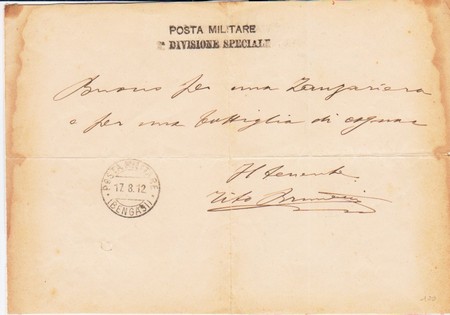 POSTA MILITARE
2ª DIVISIONE SPECIALE
Buono per una Zanzariera
e per una bottiglia di cognac
Il tenente
Tito
POSTA MILITARE
17.8.12
(BENGASI)